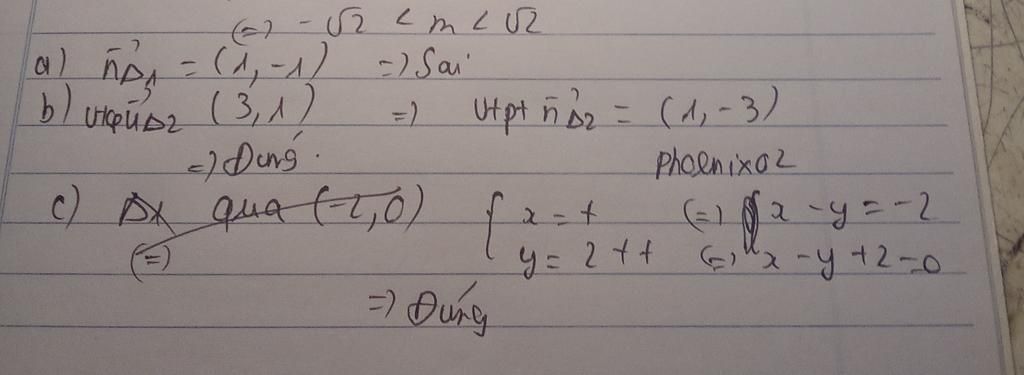 (=) -√2 < m < √2
a) n⃗Δ1 = (1, -1) => Sai
b) vtcp u⃗Δ2 (3, 1) => vtpt n⃗Δ2 = (1, -3)
=> Đúng.
phoenix02
c) Δ1 qua (-2, 0) { x = t (=) x - y = -2
(=) y = 2 + t (=) x - y + 2 = 0
=> Đúng